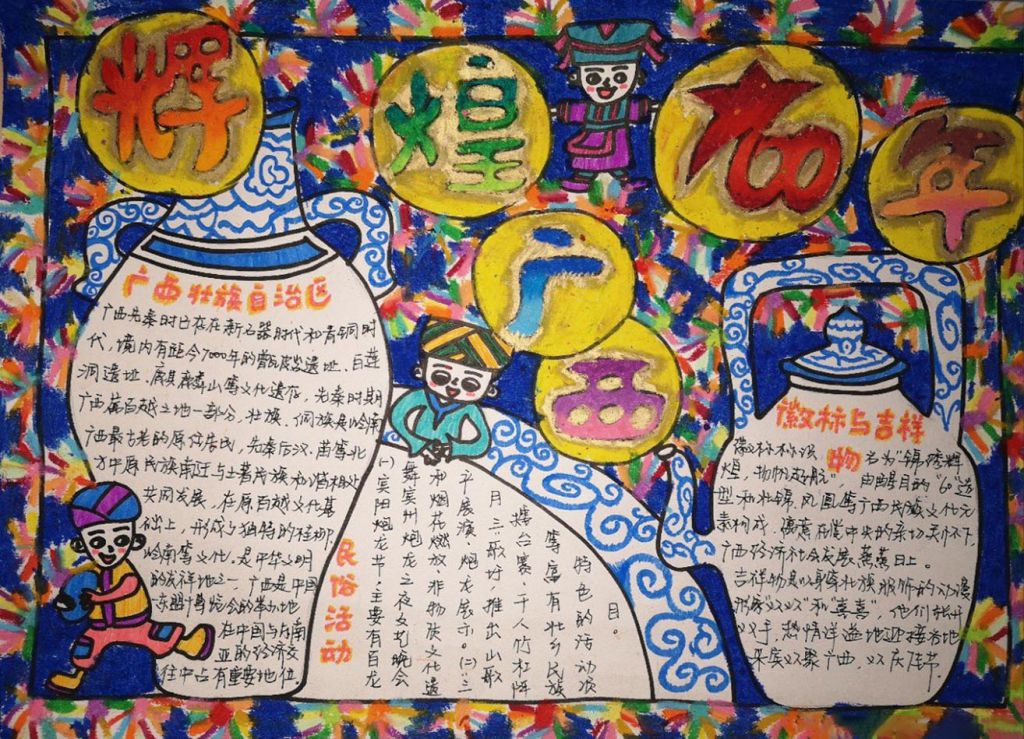 辉煌60年
广西
广西壮族自治区
广西先秦时已存在新石器时代和青铜时
代,境内有距今7000年的甑皮岩遗址、白莲
洞遗址、山等文化遗存。先秦时期
广西属百越土地一部分,壮族、侗族是岭南
广西最古老的原住居民,先秦后汉、苗等北
方中原民族南迁与土著民族和谐相处
共同发展,在原百越文化基
础上,形成与独特的桂柳、
岭南等文化,是中华文明
的发祥地之一。广西是中国
-东盟博览会的举办地
在中国与东南
亚的经济交
往中占有重要地位.
民俗活动
(一)宾阳炮龙节:主要有百龙
舞宾州、炮龙之夜文艺晚会
和烟花燃放、非物质文化遗
产展演、炮龙展示。(二)三
月三歌圩推出山歌
擂台赛、千人竹杠阵
等富有壮乡民族
特色的活动项
目。
徽标与吉祥
物
徽标标识 名为"锦绣辉
煌, 由醒目的"60"造
型和壮锦、凤凰等广西民族文化元
素构成,在党中央的亲切关怀下
广西经济社会发展,蒸蒸日上。
吉祥物是以身穿壮族服饰的动漫
形象"双双"和"喜喜",他们张开
双手,热情洋溢地迎接各地
来宾欢聚广西,欢庆佳节.